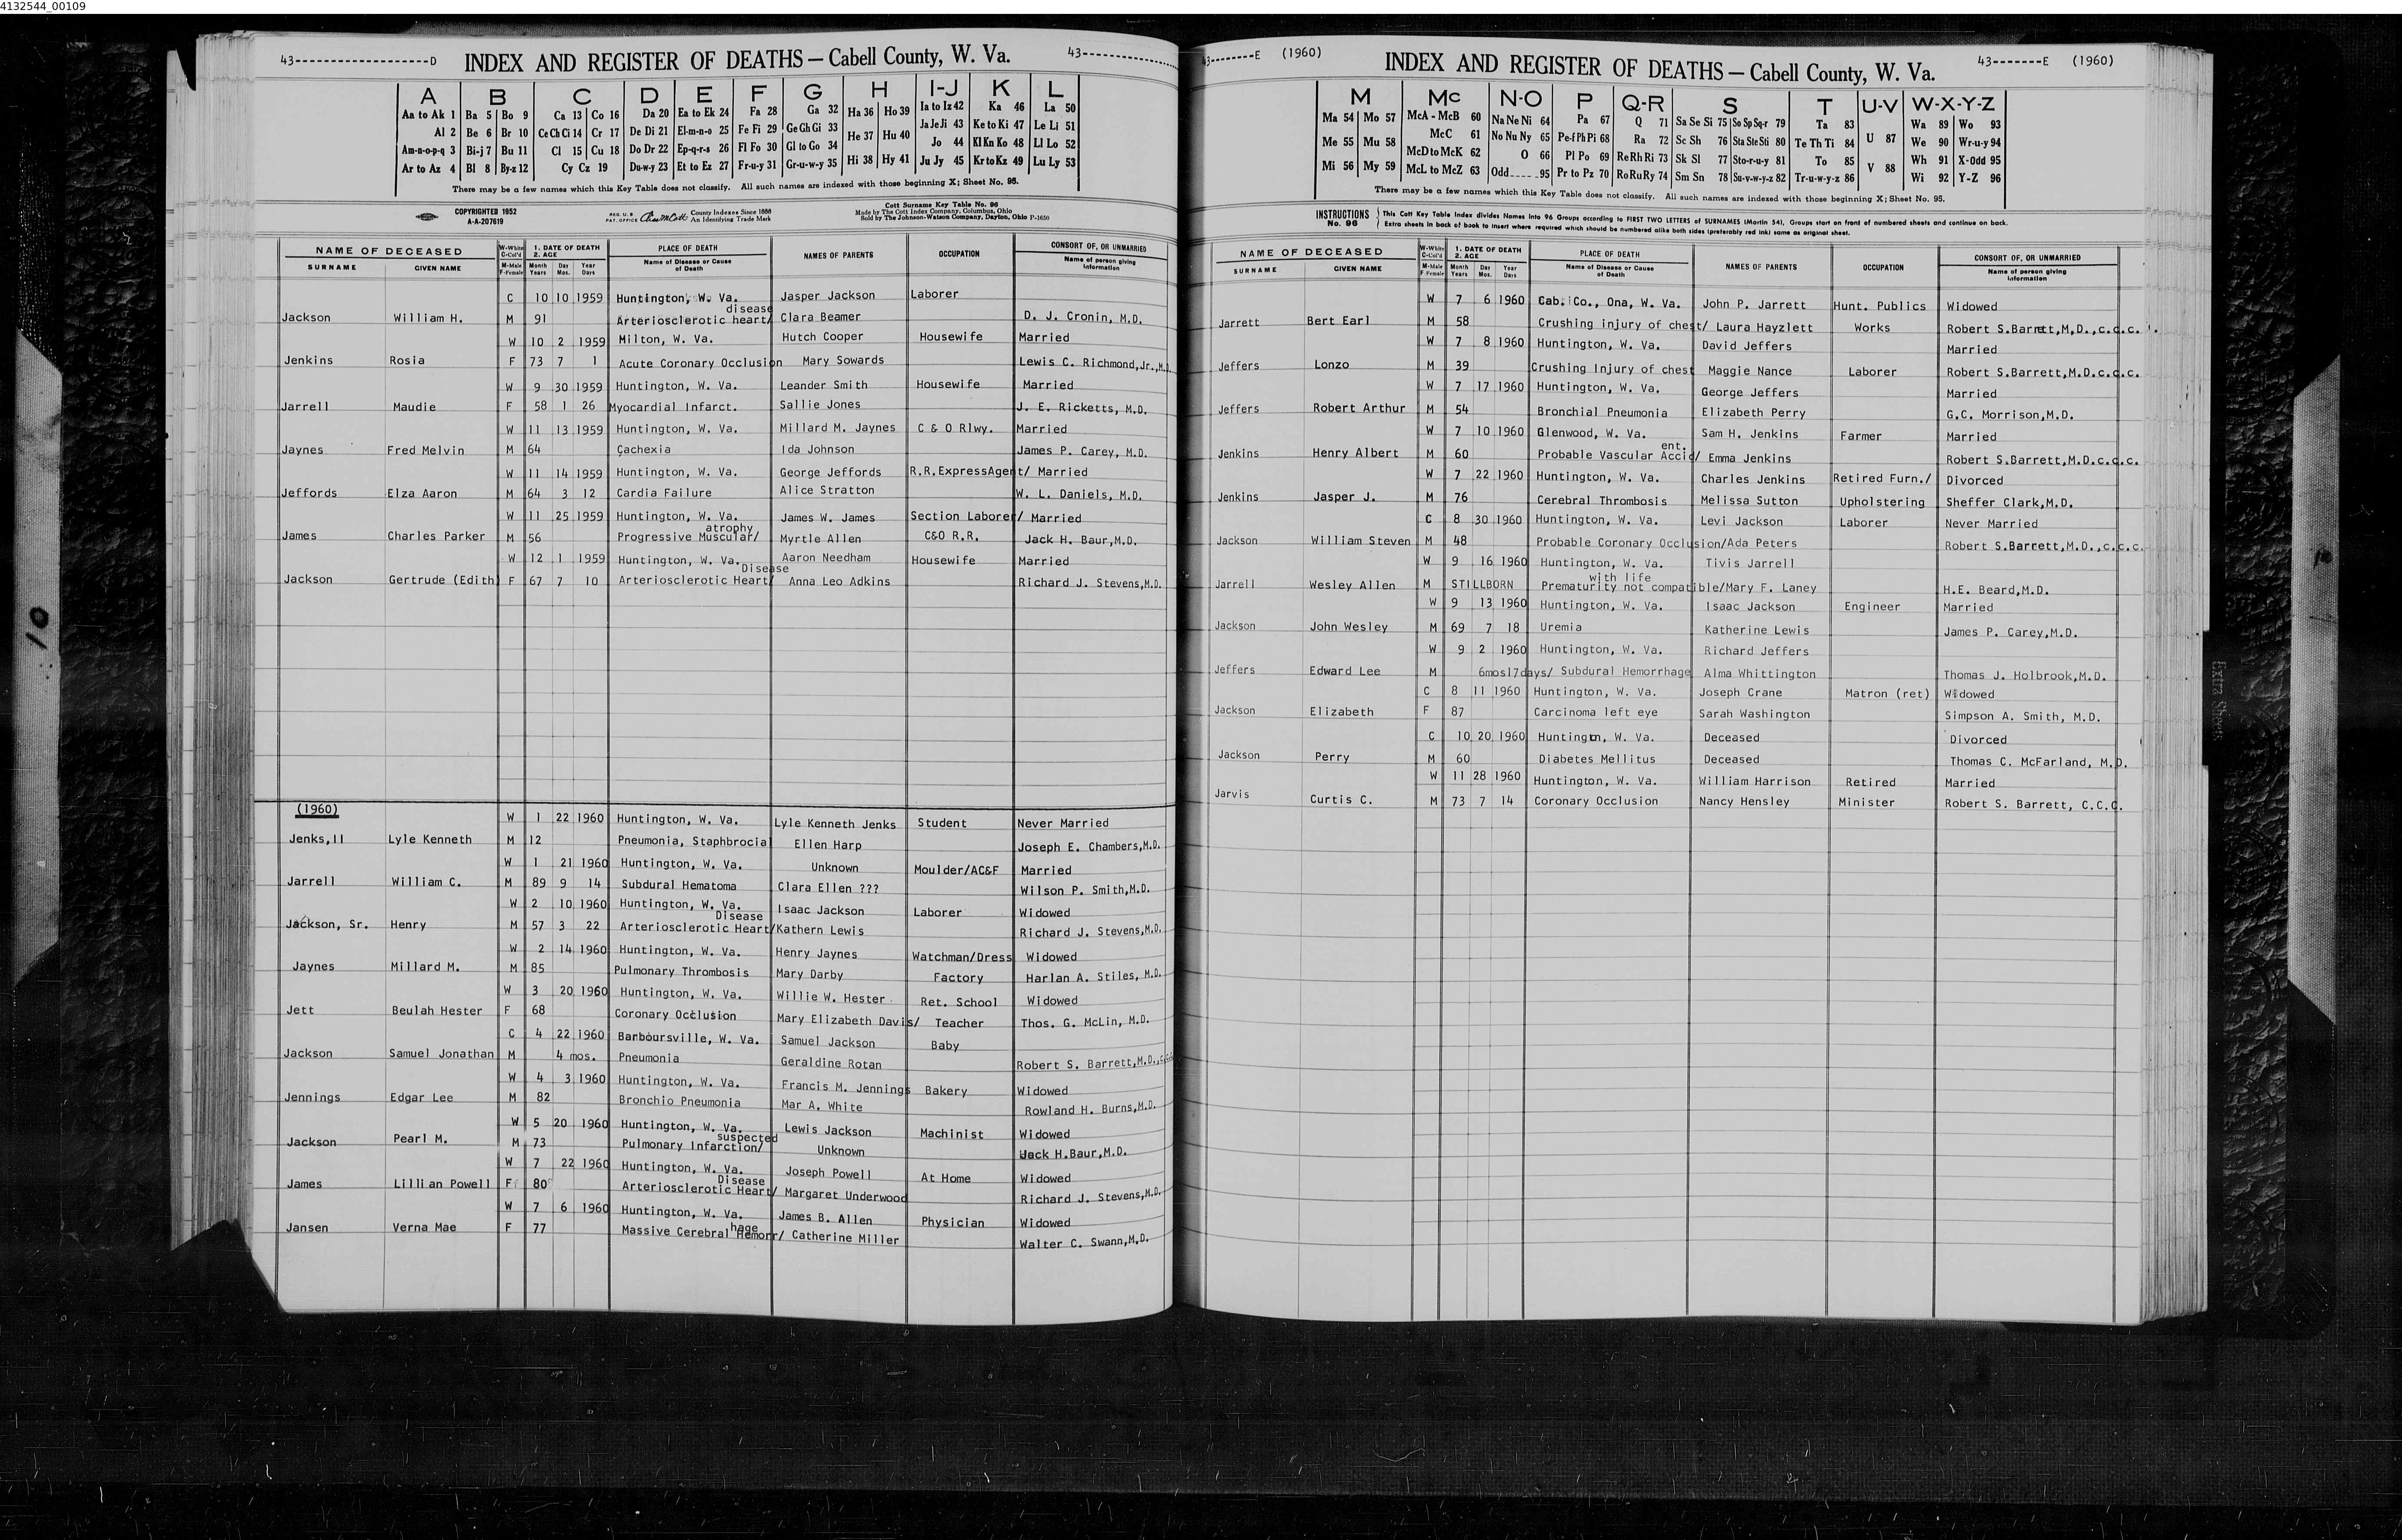 4132544_00109
43--------------------D INDEX AND REGISTER OF DEATHS — Cabell County, W. Va. 43--------------
A B C D E F G H I-J K L
Aa to Ak 1 Ba 5 Bo 9 Ca 13 Co 16 Da 20 Ea to Ek 24 Fa 28 Ga 32 Ha 36 Ho 39 Ia to Iz 42 Ka 46 La 50
Al 2 Be 6 Br 10 Ce Ch Ci 14 Cr 17 De Di 21 El-m-n-o 25 Fe Fi 29 Ge Gh Gi 33 He 37 Hu 40 Ja Je Ji 43 Ke to Ki 47 Le Li 51
Am-n-o-p-q 3 Bi-j 7 Bu 11 Cl 15 Cu 18 Do Dr 22 Ep-q-r-s 26 Fl Fo 30 Gl to Go 34 Jo 44 Kl Kn Ko 48 Ll Lo 52
Ar to Az 4 Bl 8 By-z 12 Cy Cz 19 Du-w-y 23 Et to Ez 27 Fr-u-y 31 Gr-u-w-y 35 Hi 38 Hy 41 Ju Jy 45 Kr to Kz 49 Lu Ly 53
There may be a few names which this Key Table does not classify. All such names are indexed with those beginning X; Sheet No. 95.
COPYRIGHTED 1952
A-A-207619
REG. U.S. PAT. OFFICE County Indexes Since 1888 An Identifying Trade Mark
Cott Surname Key Table No. 96
Made by The Cott Index Company, Columbus, Ohio
Sold by The Johnson-Watson Company, Dayton, Ohio P-1650
NAME OF DECEASED W-White C-Col'd 1. DATE OF DEATH 2. AGE PLACE OF DEATH NAMES OF PARENTS OCCUPATION CONSORT OF, OR UNMARRIED
SURNAME GIVEN NAME M-Male F-Female Month Years Day Mos. Year Days Name of Disease or Cause of Death Name of person giving information
C 10 10 1959 Huntington, W. Va. Jasper Jackson Laborer
disease
Jackson William H. M 91 Arteriosclerotic heart/ Clara Beamer D. J. Cronin, M.D.
W 10 2 1959 Milton, W. Va. Hutch Cooper Housewife Married
Jenkins Rosia F 73 7 1 Acute Coronary Occlusion Mary Sowards Lewis C. Richmond,Jr.,M.D.
W 9 30 1959 Huntington, W. Va. Leander Smith Housewife Married
Jarrell Maudie F 58 1 26 Myocardial Infarct. Sallie Jones J. E. Ricketts, M.D.
W 11 13 1959 Huntington, W. Va. Millard M. Jaynes C & O Rlwy. Married
Jaynes Fred Melvin M 64 Cachexia Ida Johnson James P. Carey, M.D.
W 11 14 1959 Huntington, W. Va. George Jeffords R.R.ExpressAgent/ Married
Jeffords Elza Aaron M 64 3 12 Cardia Failure Alice Stratton W. L. Daniels, M.D.
W 11 25 1959 Huntington, W. Va. James W. James Section Laborer/ Married
atrophy
James Charles Parker M 56 Progressive Muscular/ Myrtle Allen C&O R.R. Jack H. Baur,M.D.
W 12 1 1959 Huntington, W. Va. Aaron Needham Housewife Married
Disease
Jackson Gertrude (Edith) F 67 7 10 Arteriosclerotic Heart/ Anna Leo Adkins Richard J. Stevens,M.D.
(1960)
W 1 22 1960 Huntington, W. Va. Lyle Kenneth Jenks Student Never Married
Jenks,II Lyle Kenneth M 12 Pneumonia, Staphbrocial Ellen Harp Joseph E. Chambers,M.D.
W 1 21 1960 Huntington, W. Va. Unknown Moulder/AC&F Married
Jarrell William C. M 89 9 14 Subdural Hematoma Clara Ellen ??? Wilson P. Smith,M.D.
W 2 10 1960 Huntington, W. Va. Isaac Jackson Laborer Widowed
Disease
Jackson, Sr. Henry M 57 3 22 Arteriosclerotic Heart/Kathern Lewis Richard J. Stevens,M.D.
W 2 14 1960 Huntington, W. Va. Henry Jaynes Watchman/Dress Widowed
Jaynes Millard M. M 85 Pulmonary Thrombosis Mary Darby Factory Harlan A. Stiles, M.D.
W 3 20 1960 Huntington, W. Va. Willie W. Hester Ret. School Widowed
Jett Beulah Hester F 68 Coronary Occlusion Mary Elizabeth Davis/ Teacher Thos. G. McLin, M.D.
C 4 22 1960 Barboursville, W. Va. Samuel Jackson Baby
Jackson Samuel Jonathan M 4 mos. Pneumonia Geraldine Rotan Robert S. Barrett,M.D.,c.c.c.
W 4 3 1960 Huntington, W. Va. Francis M. Jennings Bakery Widowed
Jennings Edgar Lee M 82 Bronchio Pneumonia Mar A. White Rowland H. Burns,M.D.
W 5 20 1960 Huntington, W. Va. Lewis Jackson Machinist Widowed
suspected
Jackson Pearl M. M 73 Pulmonary Infarction/ Unknown Jack H.Baur,M.D.
W 7 22 1960 Huntington, W. Va. Joseph Powell At Home Widowed
Disease
James Lillian Powell F 80 Arteriosclerotic Heart/ Margaret Underwood Richard J. Stevens,M.D.
W 7 6 1960 Huntington, W. Va. James B. Allen Physician Widowed
hage
Jansen Verna Mae F 77 Massive Cerebral Hemorr/ Catherine Miller Walter C. Swann,M.D.
43-------E (1960) INDEX AND REGISTER OF DEATHS — Cabell County, W. Va. 43-------E (1960)
M Mc N-O P Q-R S T U-V W-X-Y-Z
Ma 54 Mo 57 McA - McB 60 Na Ne Ni 64 Pa 67 Q 71 Sa Se Si 75 So Sp Sq-r 79 Ta 83 U 87 Wa 89 Wo 93
Me 55 Mu 58 McC 61 No Nu Ny 65 Pe-f Ph Pi 68 Ra 72 Sc Sh 76 Sta Ste Sti 80 Te Th Ti 84 We 90 Wr-u-y 94
McD to McK 62 O 66 Pl Po 69 Re Rh Ri 73 Sk Sl 77 Sto-r-u-y 81 To 85 V 88 Wh 91 X-Odd 95
Mi 56 My 59 McL to McZ 63 Odd-----95 Pr to Pz 70 Ro Ru Ry 74 Sm Sn 78 Su-v-w-y-z 82 Tr-u-w-y-z 86 Wi 92 Y-Z 96
There may be a few names which this Key Table does not classify. All such names are indexed with those beginning X; Sheet No. 95.
INSTRUCTIONS No. 96 This Cott Key Table Index divides Names into 96 Groups according to FIRST TWO LETTERS of SURNAMES (Martin 54), Groups start on front of numbered sheets and continue on back.
Extra sheets in back of book to insert where required which should be numbered alike both sides (preferably red ink) same as original sheet.
NAME OF DECEASED W-White C-Col'd 1. DATE OF DEATH 2. AGE PLACE OF DEATH NAMES OF PARENTS OCCUPATION CONSORT OF, OR UNMARRIED
SURNAME GIVEN NAME M-Male F-Female Month Years Day Mos. Year Days Name of Disease or Cause of Death Name of person giving information
W 7 6 1960 Cab. Co., Ona, W. Va. John P. Jarrett Hunt. Publics Widowed
Jarrett Bert Earl M 58 Crushing injury of chest/ Laura Hayzlett Works Robert S.Barrett,M,D.,c.c.c.
W 7 8 1960 Huntington, W. Va. David Jeffers Married
Jeffers Lonzo M 39 Crushing Injury of chest Maggie Nance Laborer Robert S.Barrett,M.D.c.c.c.
W 7 17 1960 Huntington, W. Va. George Jeffers Married
Jeffers Robert Arthur M 54 Bronchial Pneumonia Elizabeth Perry G.C. Morrison,M.D.
W 7 10 1960 Glenwood, W. Va. Sam H. Jenkins Farmer Married
ent.
Jenkins Henry Albert M 60 Probable Vascular Accid/ Emma Jenkins Robert S.Barrett,M.D.c.c.c.
W 7 22 1960 Huntington, W. Va. Charles Jenkins Retired Furn./ Divorced
Jenkins Jasper J. M 76 Cerebral Thrombosis Melissa Sutton Upholstering Sheffer Clark,M.D.
C 8 30 1960 Huntington, W. Va. Levi Jackson Laborer Never Married
Jackson William Steven M 48 Probable Coronary Occlusion/Ada Peters Robert S.Barrett,M.D.,c.c.c.
W 9 16 1960 Huntington, W. Va. Tivis Jarrell
with life
Jarrell Wesley Allen M STILLBORN Prematurity not compatible/Mary F. Laney H.E. Beard,M.D.
W 9 13 1960 Huntington, W. Va. Isaac Jackson Engineer Married
Jackson John Wesley M 69 7 18 Uremia Katherine Lewis James P. Carey,M.D.
W 9 2 1960 Huntington, W. Va. Richard Jeffers
Jeffers Edward Lee M 6mos17days/ Subdural Hemorrhage Alma Whittington Thomas J. Holbrook,M.D.
C 8 11 1960 Huntington, W. Va. Joseph Crane Matron (ret) Widowed
Jackson Elizabeth F 87 Carcinoma left eye Sarah Washington Simpson A. Smith, M.D.
C 10 20 1960 Huntingtn, W. Va. Deceased Divorced
Jackson Perry M 60 Diabetes Mellitus Deceased Thomas C. McFarland, M.D.
W 11 28 1960 Huntington, W. Va. William Harrison Retired Married
Jarvis Curtis C. M 73 7 14 Coronary Occlusion Nancy Hensley Minister Robert S. Barrett, C.C.C.
10
Extra Sheets